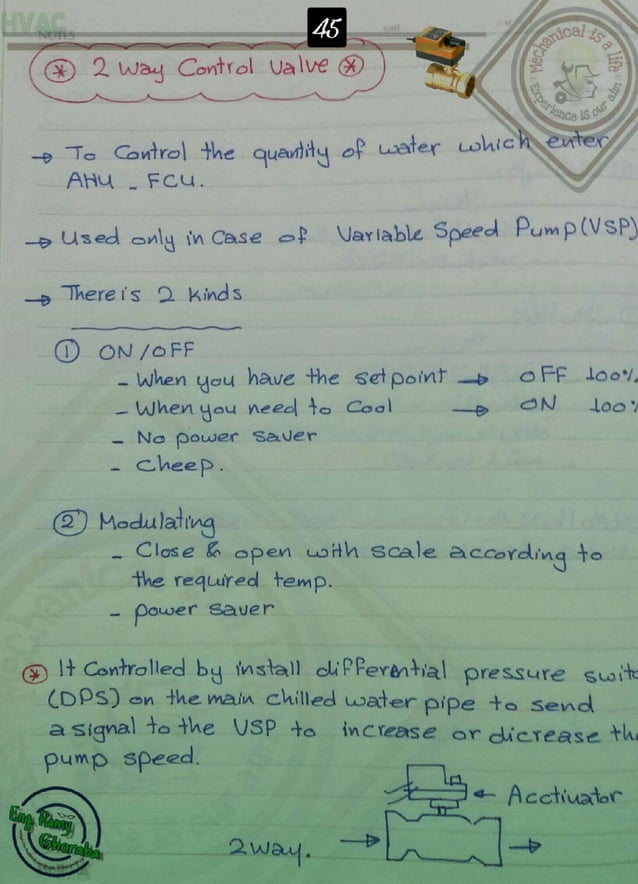 HVAC
NOTES
45
Mechanical is a life
Experience is our aim
* 2 way Control valve *
→ To Control the quantity of water which enter
AHU - FCU.
→ Used only in Case of Variable Speed Pump (VSP)
→ There is 2 Kinds
① ON/OFF
- When you have the setpoint → OFF 100%
- When you need to Cool → ON 100%
- No power saver
- Cheep.
② Modulating
- Close & open with scale according to
the required temp.
- power saver
* It Controlled by install differential pressure switc
(DPS) on the main chilled water pipe to send
a signal to the VSP to increase or dicrease the
pump speed.
← Acctivator
2 way. → →
Eng. Ramy
Ghoraba